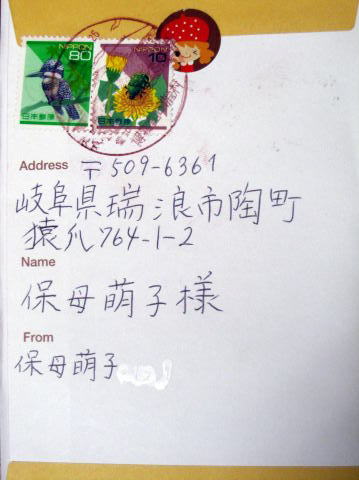 NIPPON
80
日本郵便
NIPPON
10
日本郵便
Address 〒509-6361
岐阜県瑞浪市陶町
猿爪764-1-2
Name
保母萌子様
From
保母萌子